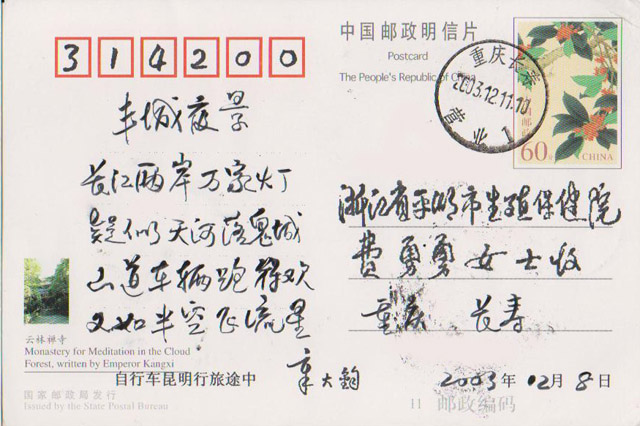 314200
中国邮政明信片
Postcard
The People's Republic of China
重庆长寿
2003.12.11.10
营业 1
中国邮政
60分 CHINA
丰城夜景
长江两岸万家灯
疑似天河落鬼城
山道车辆跑得欢
又如半空飞流星
自行车昆明行旅途中 章大钧
浙江省平湖市生殖保健院
费勇勇女士收
重庆 长寿
2003年12月8日
云林禅寺
Monastery for Meditation in the Cloud
Forest, written by Emperor Kangxi
国家邮政局发行
Issued by the State Postal Bureau
11 邮政编码